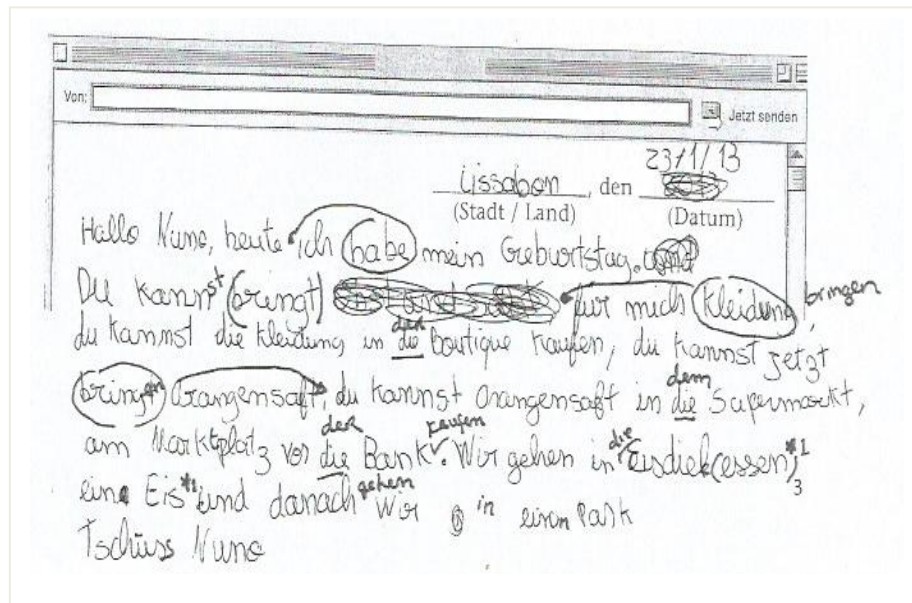 Von:
Jetzt senden
23/1/13
Lissabon, den
(Stadt / Land) (Datum)
Hallo Nuno, heute ich habe mein Geburtstag.
Du kannst bringt für mich Kleidung, bringen
der
du kannst die Kleidung in die Boutique kaufen, du kannst jetzt
dem
bringen Orangensaft, du kannst Orangensaft in die Supermarkt,
der kaufen die
am Marktplatz vor die Bank. Wir gehen in Eisdiele (essen) *1
gehen
eine Eis *1 und danach wir in einen Park
Tschüss Nuno